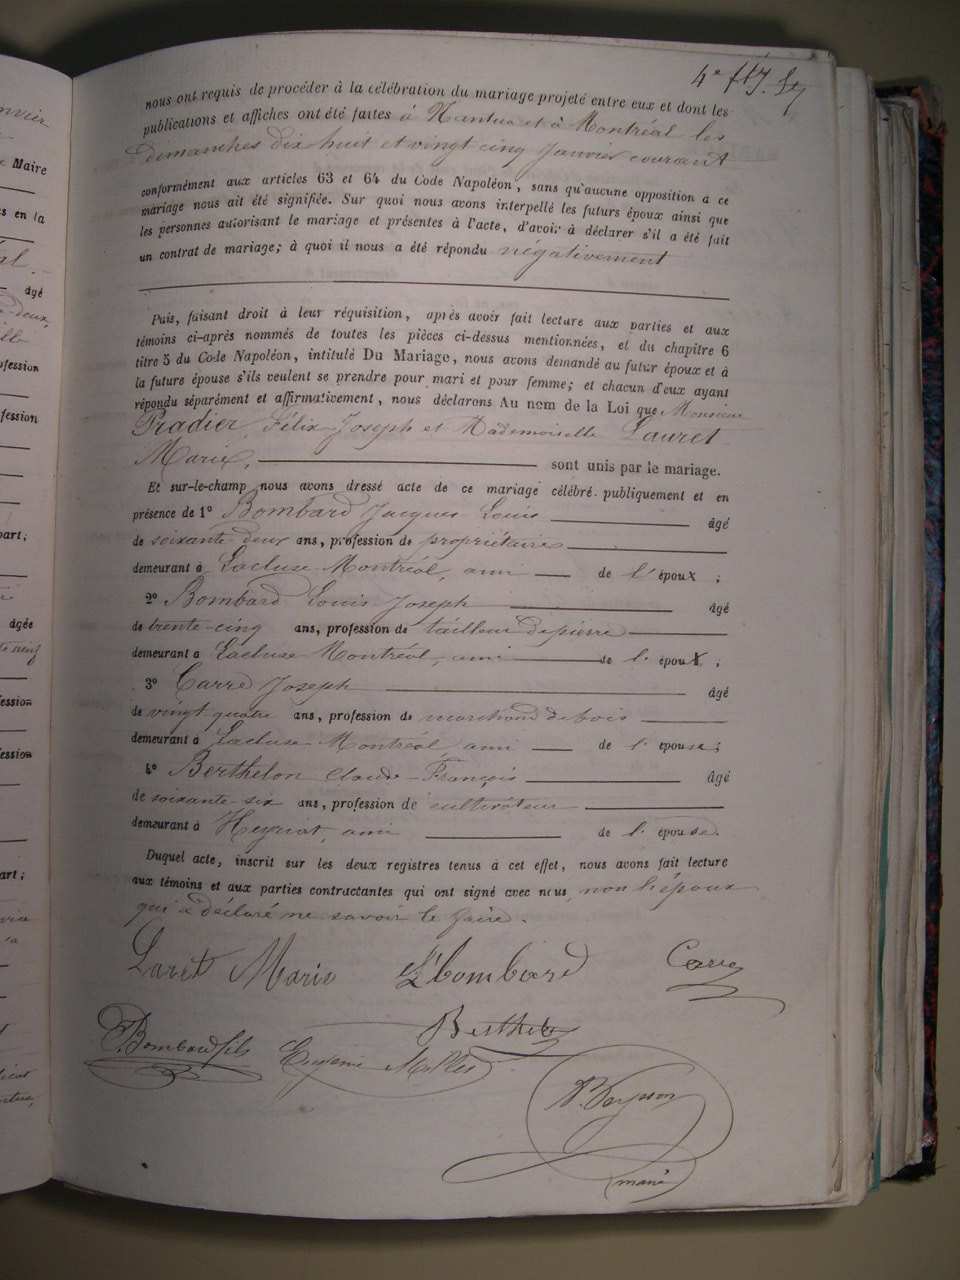 4e
nous ont requis de procéder à la célébration du mariage projeté entre eux et dont les
publications et affiches ont été faites à Nantua et à Montréal les
dimanches dix huit et vingt cinq Janvier courant
conformément aux articles 63 et 64 du Code Napoléon, sans qu'aucune opposition à ce
mariage nous ait été signifiée. Sur quoi nous avons interpellé les futurs époux ainsi que
les personnes autorisant le mariage et présentes à l'acte, d'avoir à déclarer s'il a été fait
un contrat de mariage; à quoi il nous a été répondu négativement
Puis, faisant droit à leur réquisition, après avoir fait lecture aux parties et aux
témoins ci-après nommés de toutes les pièces ci-dessus mentionnées, et du chapitre 6
titre 5 du Code Napoléon, intitulé Du Mariage, nous avons demandé au futur époux et à
la future épouse s'ils veulent se prendre pour mari et pour femme; et chacun d'eux ayant
répondu séparément et affirmativement, nous déclarons Au nom de la Loi que Monsieur
Pradier, Félix Joseph et Mademoiselle Lauret
Marie, sont unis par le mariage.
Et sur-le-champ nous avons dressé acte de ce mariage célébré publiquement et en
présence de 1° Bombard Jacques Louis âgé
de soixante-deux ans, profession de propriétaire
demeurant à Lacluse-Montréal, ami de l'époux;
2° Bombard Louis Joseph âgé
de trente-cinq ans, profession de tailleur de pierre
demeurant à Lacluse Montréal, ami de l'époux;
3° Carre Joseph âgé
de vingt quatre ans, profession de marchand de bois
demeurant à Lacluse Montréal ami de l'épouse;
4° Berthelon Claude-François âgé
de soixante-six ans, profession de cultivateur
demeurant à Heyriat, ami de l'épouse.
Duquel acte, inscrit sur les deux registres tenus à cet effet, nous avons fait lecture
aux témoins et aux parties contractantes qui ont signé avec nous non l'époux
qui a déclaré ne savoir le faire.
Laret Marie Bombard Carre
Bombard fils Berthelon
Eugenie
maire